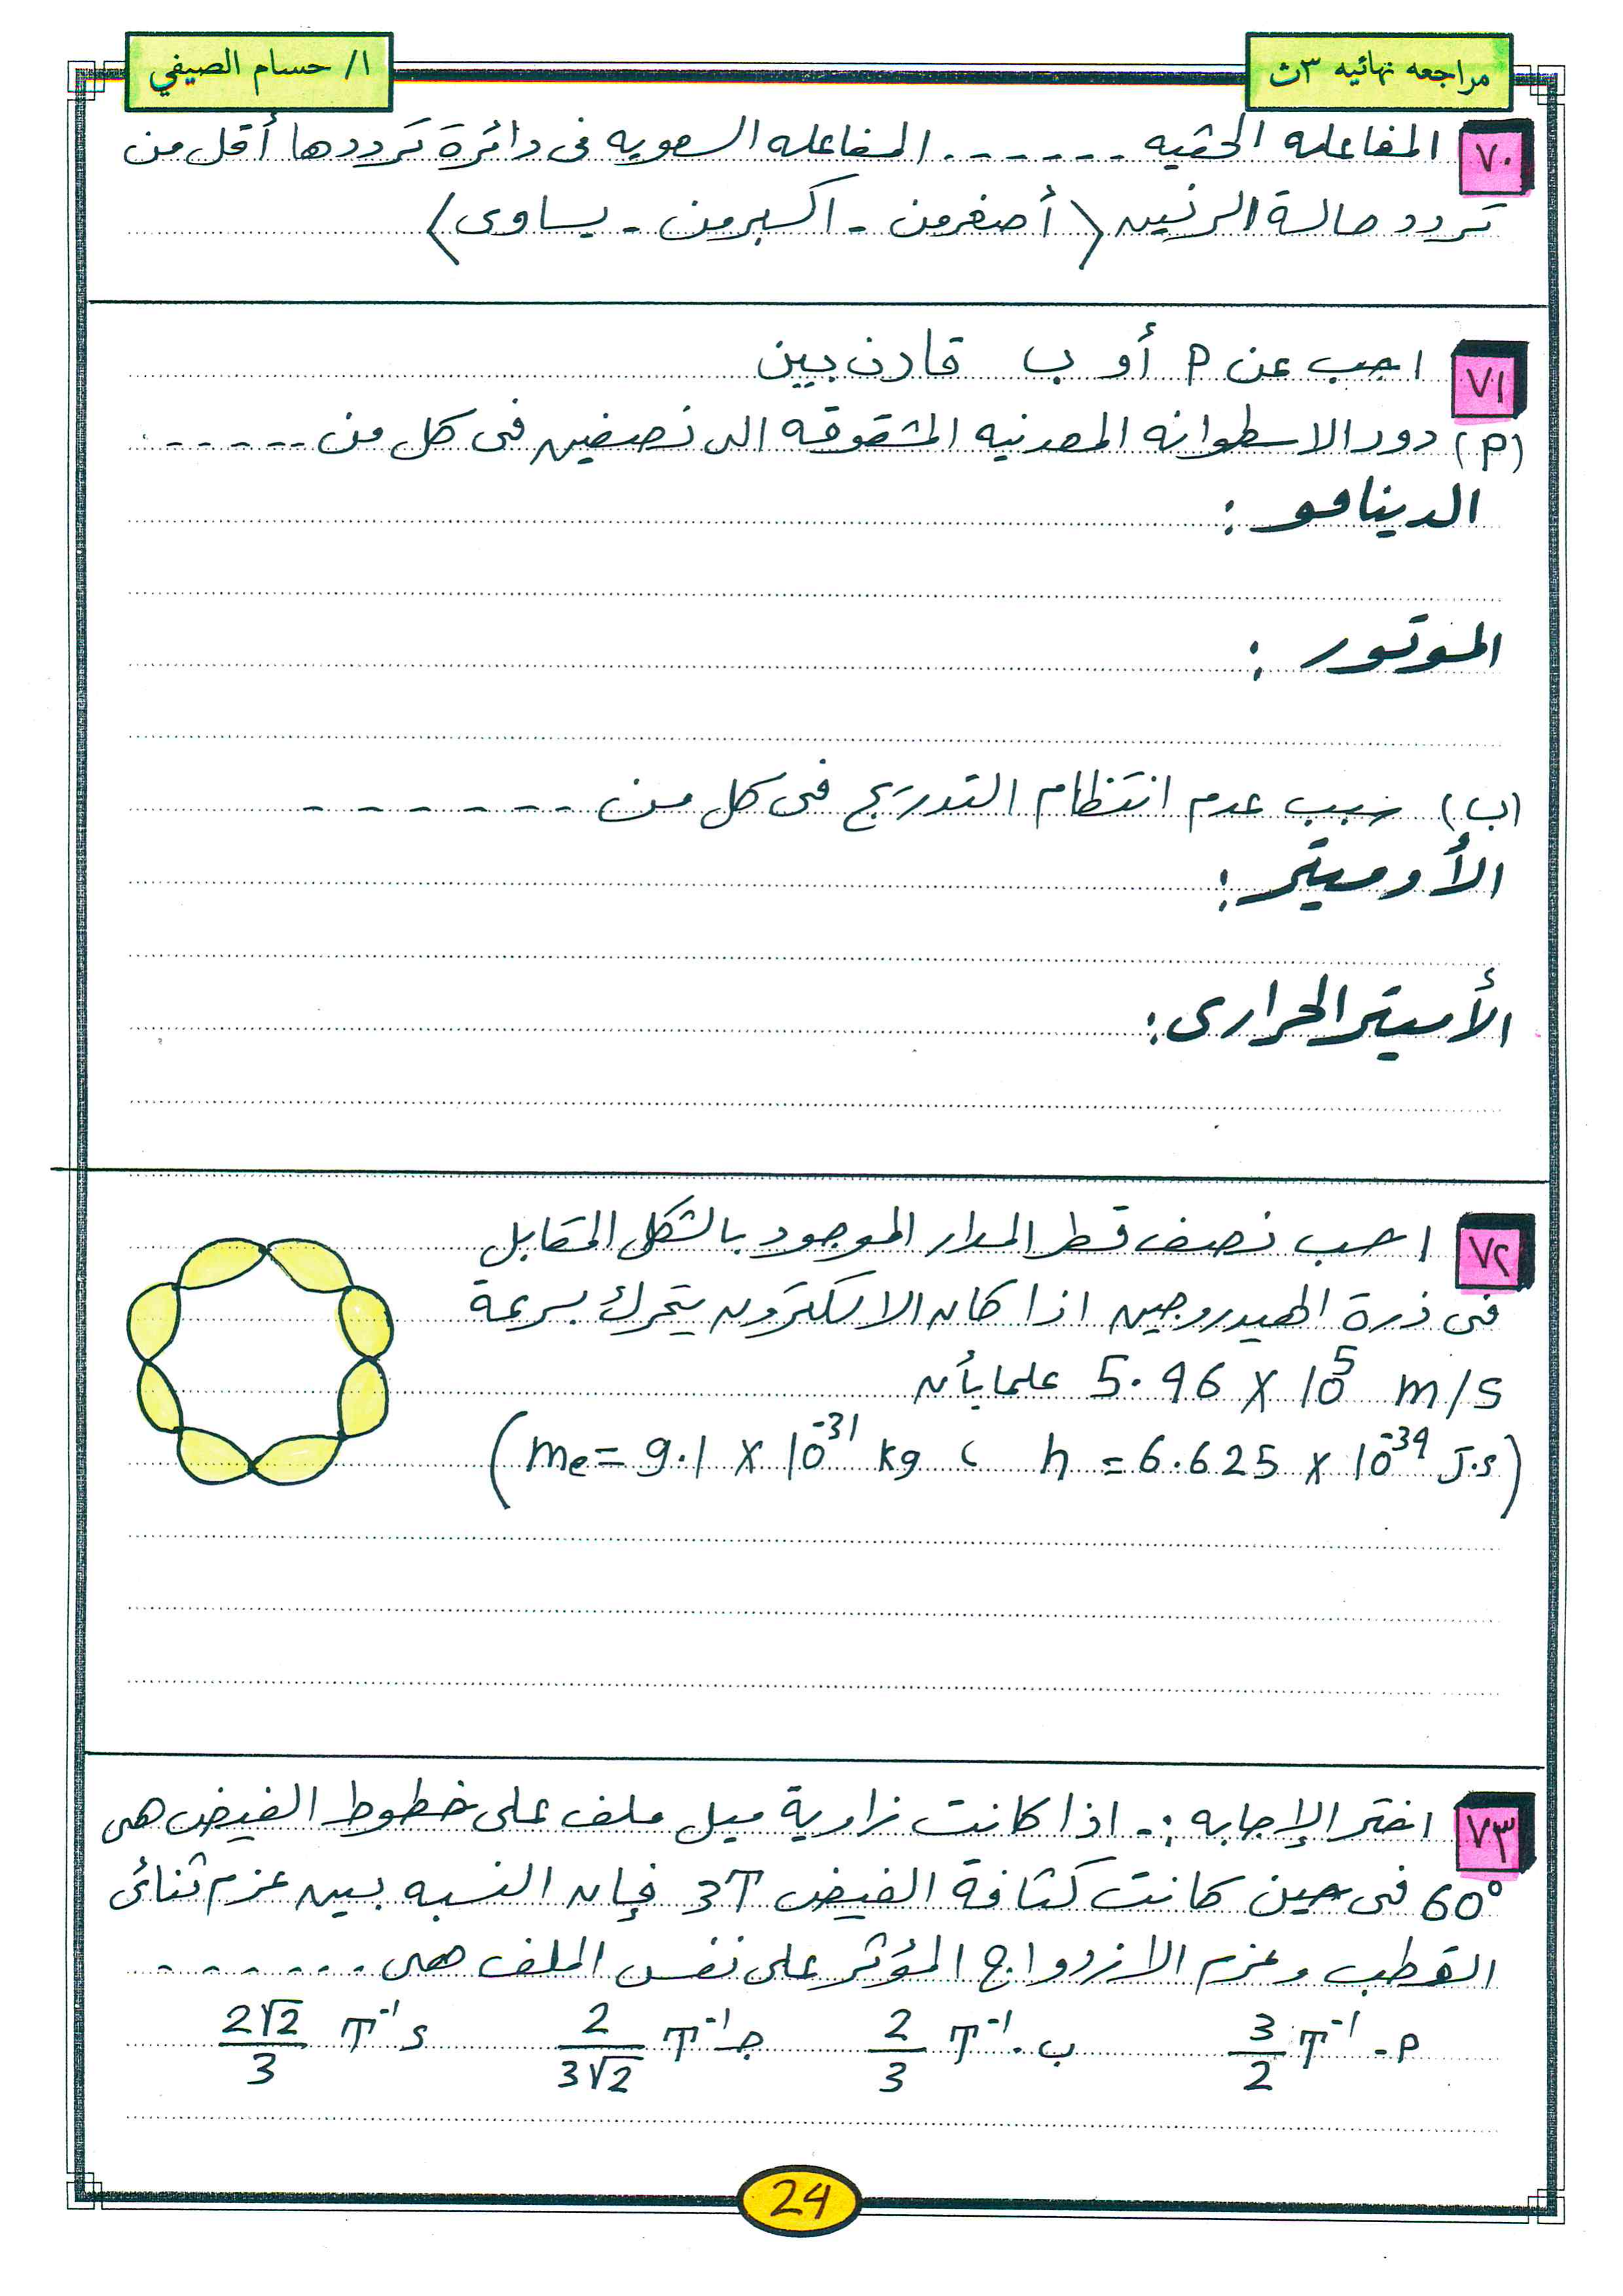 مراجعه نهائيه ٣ث
ا/ حسام الصيفي
٧٠ المفاعله الحثيه ------ المفاعله السعويه فى دائرة ترددها أقل من
تردد حالة الرنين (أصغر من - اكبر من - يساوى)
٧١ اجب عن P أو ب قارن بين
(P) دور الاسطوانه المعدنيه المشقوقه الى نصفين فى كل من -----
الدينامو :
الموتور :
(ب) سبب عدم انتظام التدريج فى كل من ------
الأوميتر :
الأميتر الحرارى :
٧٢ احسب نصف قطر المدار الموجود بالشكل المقابل
فى ذرة الهيدروجين اذا كان الالكترون يتحرك بسرعة
5.96 X 10^5 m/s علما بأن
(me = 9.1 X 10^-31 kg ، h = 6.625 X 10^-34 J.s)
٧٣ اختر الإجابه :- اذا كانت زاوية ميل ملف على خطوط الفيض هى
60° فى حين كانت كثافة الفيض 3T فإن النسبه بين عزم ثنائى
القطب وعزم الازدواج المؤثر على نفس الملف هى ------
P - 3/2 T^-1 ب - 2/3 T^-1 جـ 2/3√2 T^-1 د 2√2/3 T^-1
24